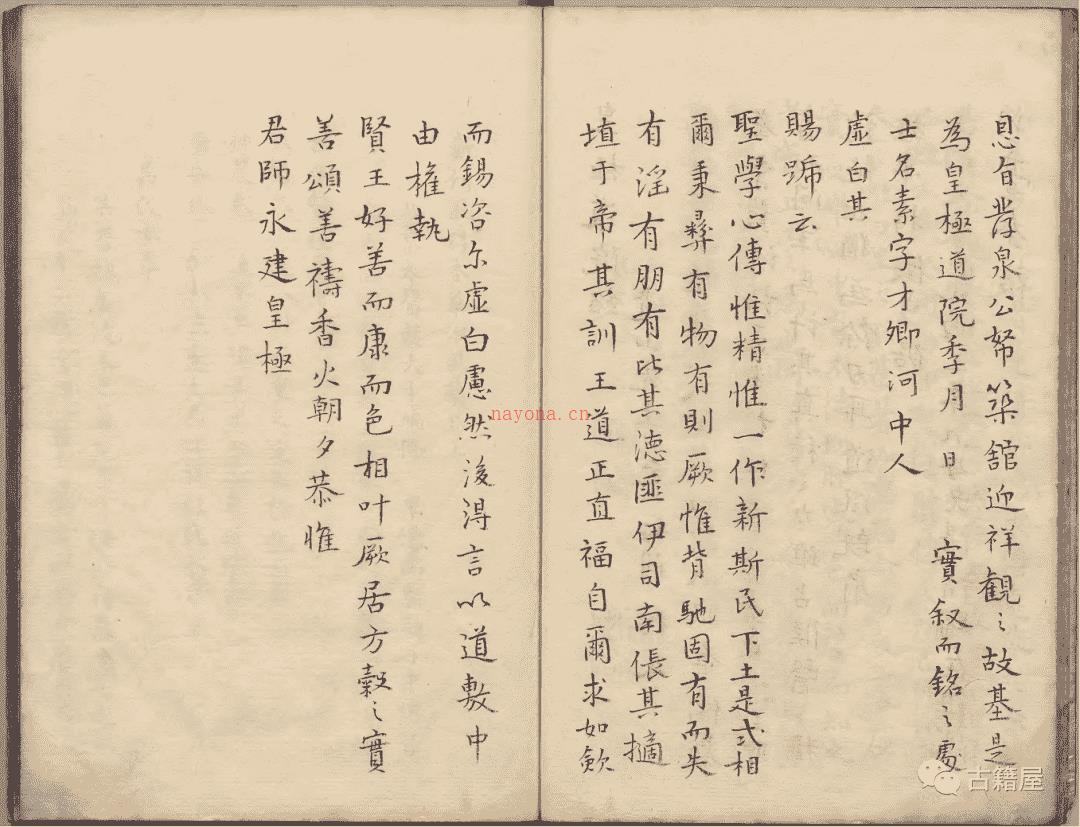 恩旨孝泉公帑築舘迎祥觀〻故基是
為皇極道院季月八日 實叙而銘之處
士名素字才卿河中人
虛白其
賜號云
聖學心傳惟精惟一作新斯民下土是式相
爾秉彝有物有則厥惟背馳固有而失
有淫有朋有比其德匪伊司南倀其擿
埴于帝其訓王道正直福自爾求如歛
而錫咨尓虛白慮然後淂言以道敷中
由權執
賢王好善而康而色相叶厥居方榖〻實
善頌善禱香火朝夕恭惟
君師永建皇極
nayona.cn
古籍屋